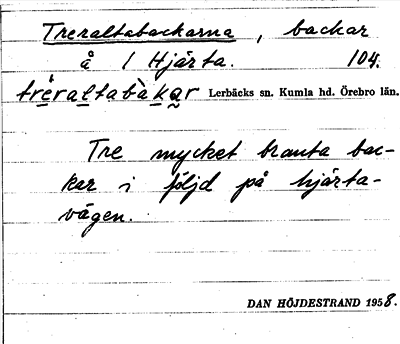 Treraltabackarna, backar
å 1 Hjärta. 104.
tréraltabàkar Lerbäcks sn. Kumla hd. Örebro län.
Tre mycket branta bac-
kar i följd på hjärta-
vägen.
DAN HÖJDESTRAND 1958.